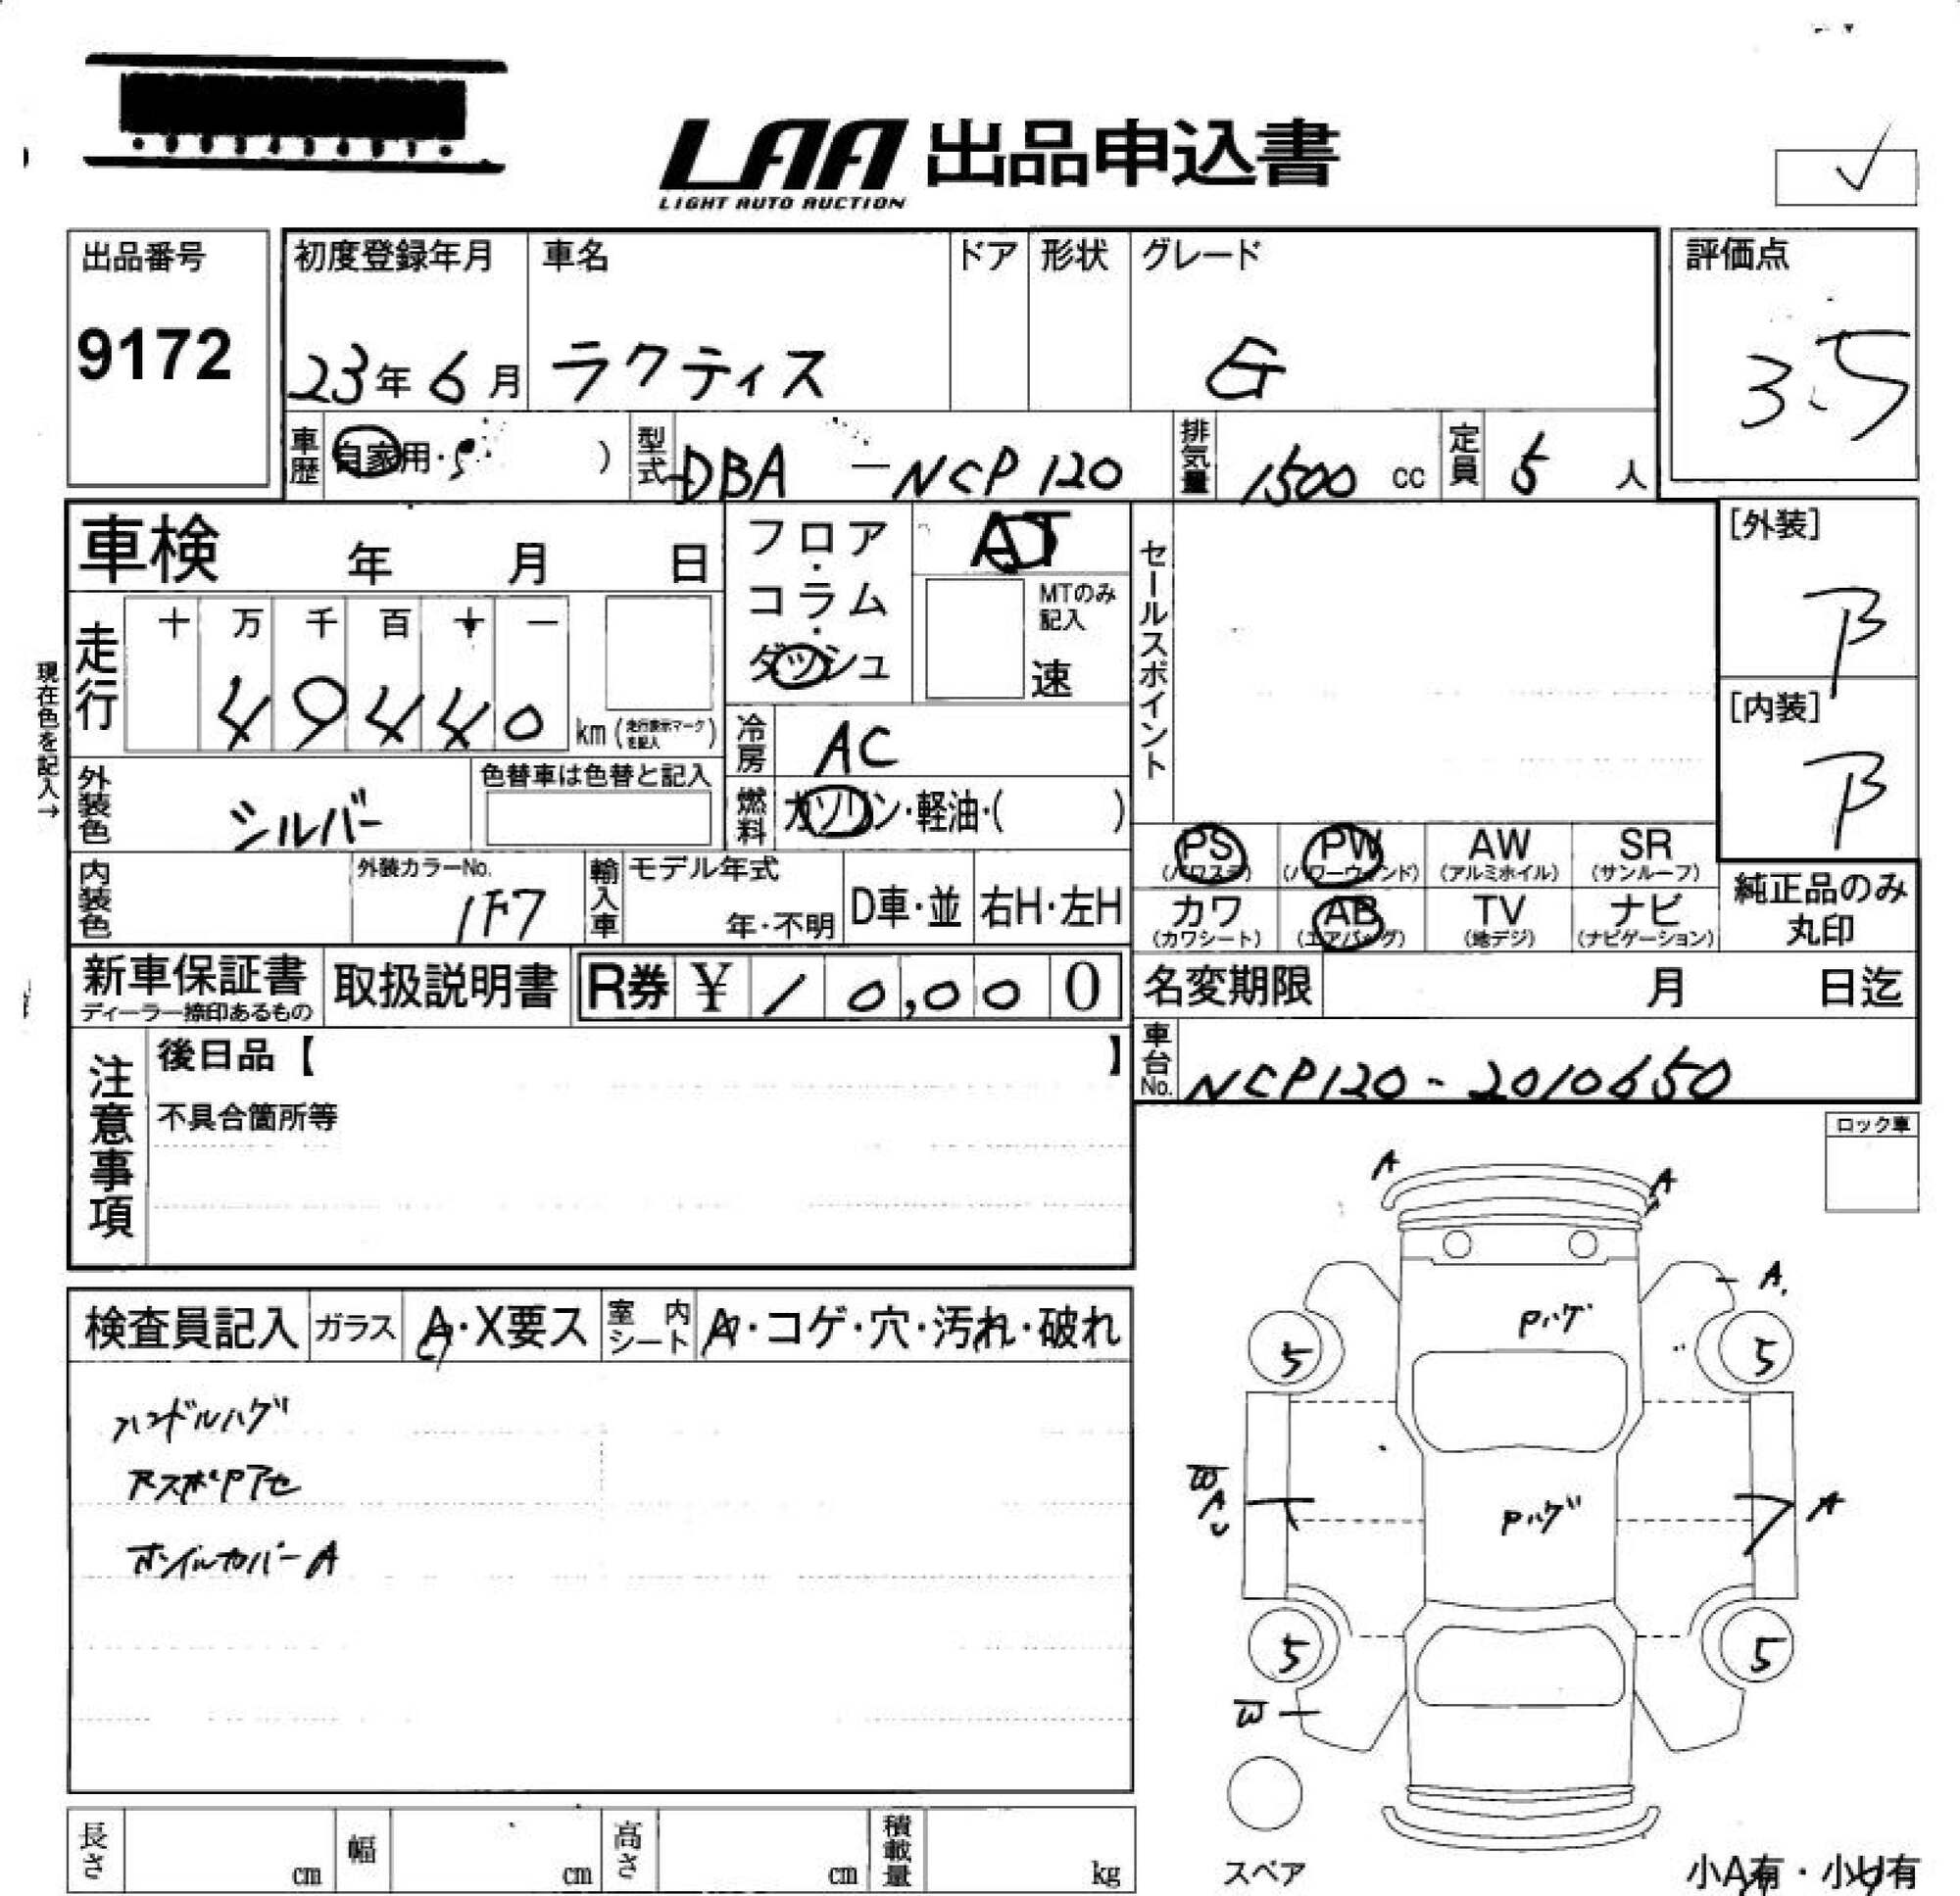 LAA 出品申込書
LIGHT AUTO AUCTION
出品番号
9172
初度登録年月
23年6月
車名
ラクティス
ドア
形状
グレード
G
評価点
3.5
車歴
自家用・
)
型式
DBA - NCP120
排気量
1500 cc
定員
5 人
車検 年 月 日
フロア・コラム・ダッシュ
AT
MTのみ記入
速
セールスポイント
[外装]
B
[内装]
B
現在色を記入→
走行
十 万 千 百 十 一
4 9 4 4 0 km (走行表示マークを記入)
冷房
AC
外装色
シルバー
色替車は色替と記入
燃料
ガソリン・軽油・( )
内装色
外装カラーNo.
1F7
輸入車
モデル年式
年・不明
D車・並
右H・左H
PS
(パワステ)
PW
(パワーウィンド)
AW
(アルミホイル)
SR
(サンルーフ)
カワ
(カワシート)
AB
(エアバッグ)
TV
(地デジ)
ナビ
(ナビゲーション)
純正品のみ
丸印
新車保証書
ディーラー捺印あるもの
取扱説明書
R券 ¥ 10,000
名変期限 月 日迄
車台No.
NCP120-2010650
注意事項
後日品【 】
不具合箇所等
ロック車
検査員記入
ガラス
A・X要ス
室内シート
A・コゲ・穴・汚れ・破れ
ハンドルハゲ
ホイルカバーA
A
A
A
Pハゲ
5
5
W
A
U
Pハゲ
A
5
5
W
スペア
長さ cm
幅 cm
高さ cm
積載量 kg
小A有・小U有